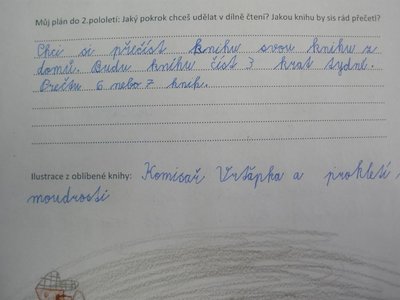 Můj plán do 2.pololetí: Jaký pokrok chceš udělat v dílně čtení? Jakou knihu by sis rád přečetl?
Chci si přečíst knihu svou knihu z
domů. Budu knihu číst 3 krat tydně.
Přečtu 6 nebo 7 knih.
Ilustrace z oblíbené knihy: Komisař Vrťapka a prokletí
moudrosti